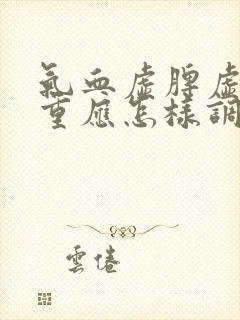 氣血虛脾虛
重應怎樣調
雲倦